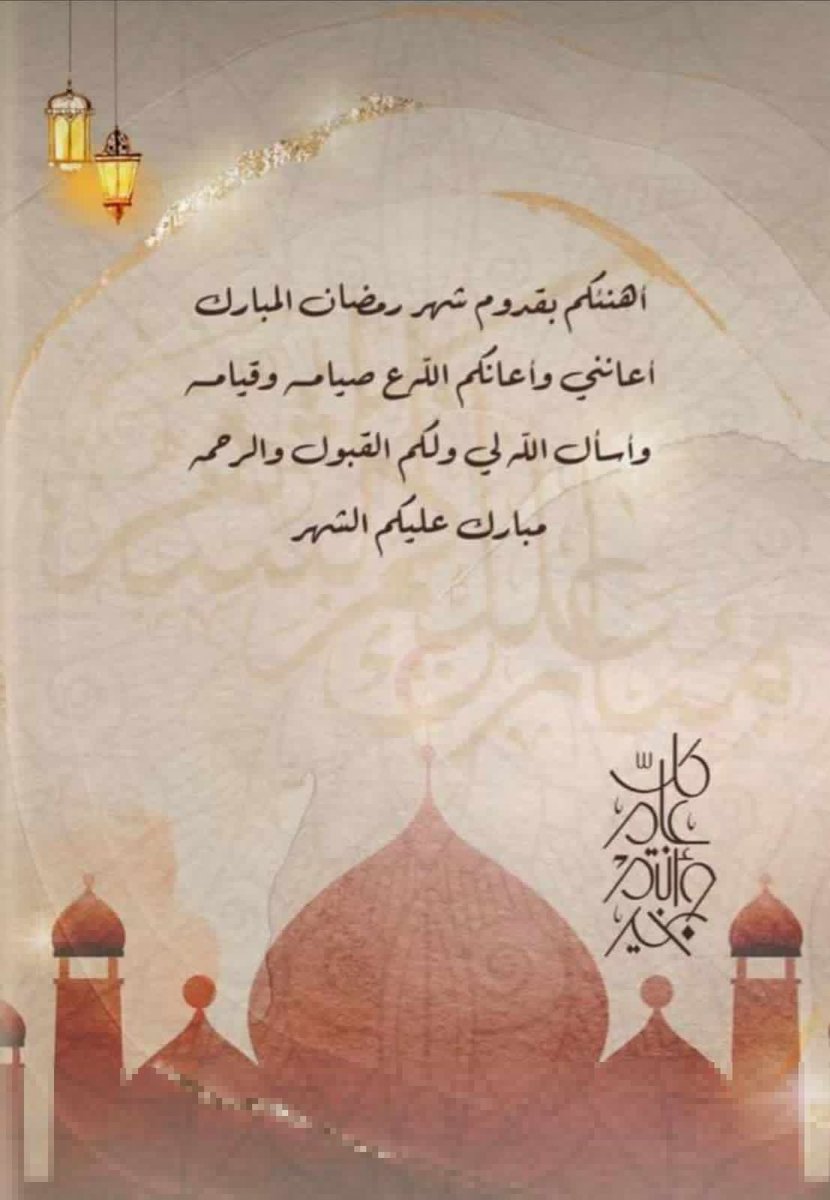 أهنئكم بقدوم شهر رمضان المبارك
أعانني وأعانكم اللّه ع صيامه وقيامه
وأسأل اللّه لي ولكم القبول والرحمه
مبارك عليكم الشهر
كل
عام
وأنتم
بخير